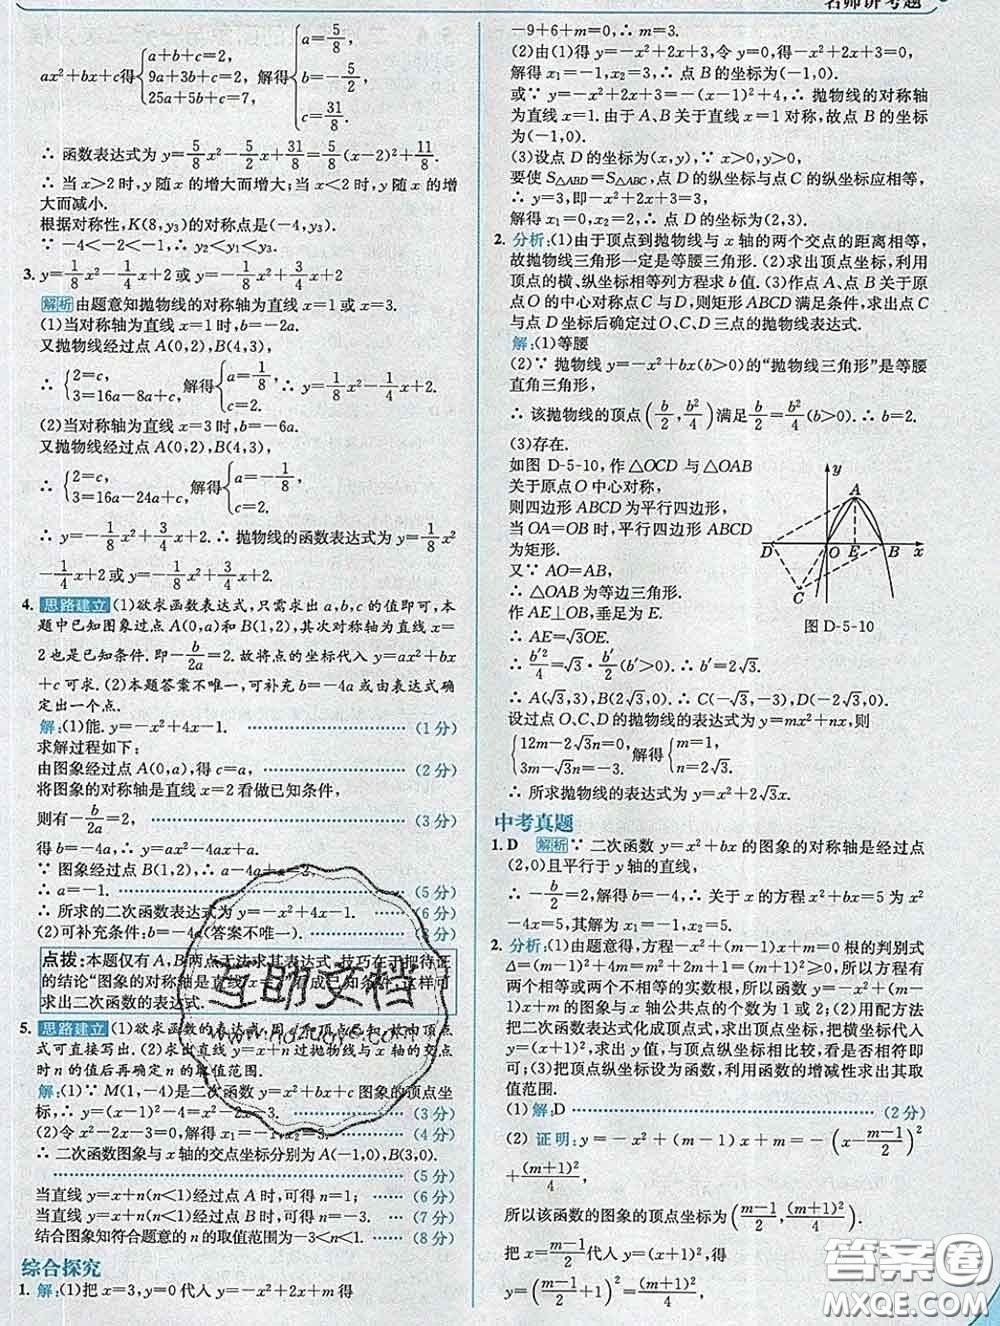 名师讲考题
ax²+bx+c得{a+b+c=2, 9a+3b+c=2, 25a+5b+c=7. 解得{a=5/8, b=-5/2, c=31/8.
∴ 函数表达式为 y=5/8x²-5/2x+31/8=5/8(x-2)²+11/8
∴ 当 x>2 时,y 随 x 的增大而增大;当 x<2 时,y 随 x 的增
大而减小.
根据对称性,K(8,y₃)的对称点是(-4,y₃).
∵ -4<-2<-1,∴ y₂<y₁<y₃.
3. y=1/8x²-1/4x+2 或 y=-1/8x²+3/4x+2
解析 由题意知抛物线的对称轴为直线 x=1 或 x=3.
(1)当对称轴为直线 x=1 时,b=-2a.
又抛物线经过点 A(0,2),B(4,3),
∴ {2=c, 3=16a-8a+c, 解得{a=1/8, c=2. ∴ y=1/8x²-1/4x+2.
(2)当对称轴为直线 x=3 时,b=-6a.
又抛物线经过点 A(0,2),B(4,3),
∴ {2=c, 3=16a-24a+c, 解得{a=-1/8, c=2.
∴ y=-1/8x²+3/4x+2. ∴ 抛物线的函数表达式为 y=1/8x²
-1/4x+2 或 y=-1/8x²+3/4x+2.
4. 思路建立 (1)欲求函数表达式,只需求出 a,b,c 的值即可,本
题中已知图象过点 A(0,a)和 B(1,2),其次对称轴为直线 x=
2 也是已知条件.即-b/2a=2.故将点的坐标代入 y=ax²+bx
+c 可求.(2)本题答案不唯一,可补充 b=-4a 或由表达式确
定出一个点.
解:(1)能. y=-x²+4x-1. (1 分)
求解过程如下:
由图象经过点 A(0,a),得 c=a, (2 分)
将图象的对称轴是直线 x=2 看做已知条件,
则有-b/2a=2, (3 分)
得 b=-4a,∴ y=ax²-4ax+a.
∵ 图象经过点 B(1,2),∴ a-4a+a=2.
∴ a=-1. (5 分)
∴ 所求的二次函数表达式为 y=-x²+4x-1. (6 分)
(2)可补充条件:b=-4a(答案不唯一).
点拨:本题仅有 A,B 两点无法求其表达式,技巧在于把待证
的结论“图象的对称轴是直线 x=2”当成已知条件,这样可
求出二次函数的表达式.
5. 思路建立 (1)欲求函数的表达式,
式可直接写出.(2)求出直线 y=x+n 过抛物线与 x 轴的交点
时 n 的值后再确定 n 的取值范围.
解:(1)∵ M(1,-4)是二次函数 y=x²+bx+c 图象的顶点坐
标,∴ y=(x-1)²-4=x²-2x-3. (3 分)
(2)令 x²-2x-3=0,解得 x₁=-1,x₂=3, (4 分)
∴ 二次函数图象与 x 轴的交点坐标分别为 A(-1,0),B(3,0).
(5 分)
当直线 y=x+n(n<1)经过点 A 时,可得 n=1; (6 分)
当直线 y=x+n(n<1)经过点 B 时,可得 n=-3. (7 分)
结合图象知符合题意的 n 的取值范围为-3<n<1. (8 分)
综合探究
1. 解:(1)把 x=3,y=0 代入 y=-x²+2x+m 得
-9+6+m=0,∴ m=3.
(2)由(1)得 y=-x²+2x+3,令 y=0,得-x²+2x+3=0,
解得 x₁=-1,x₂=3,∴ 点 B 的坐标为(-1,0).
或∵ y=-x²+2x+3=-(x-1)²+4,∴ 抛物线的对称轴
为直线 x=1.由于 A、B 关于直线 x=1 对称,故点 B 的坐标为
(-1,0).
(3)设点 D 的坐标为(x,y),∵ x>0,y>0,
要使 S△ABD=S△ABC,点 D 的纵坐标与点 C 的纵坐标应相等,
∴ y=3,即-x²+2x+3=3,
解得 x₁=0,x₂=2,∴ 点 D 的坐标为(2,3).
2. 分析:(1)由于顶点到抛物线与 x 轴的两个交点的距离相等,
故抛物线三角形一定是等腰三角形.(2)求出顶点坐标,利用
顶点的横、纵坐标相等列方程求 b 值.(3)作点 A、B 关于原
点 O 的中心对称点 C、D,则矩形 ABCD 满足条件,求出点 C
与点 D 坐标后确定过 O、C、D 三点的抛物线表达式.
解:(1)等腰
(2)∵ 抛物线 y=-x²+bx(b>0)的“抛物线三角形”是等腰
直角三角形,
∴ 该抛物线的顶点(b/2,b²/4)满足b/2=b²/4(b>0).∴ b=2.
(3)存在.
如图 D-5-10,作△OCD 与△OAB
关于原点 O 中心对称,
则四边形 ABCD 为平行四边形,
当 OA=OB 时,平行四边形 ABCD
为矩形.
又∵ AO=AB,
∴ △OAB 为等边三角形.
作 AE⊥OB,垂足为 E.
∴ AE=√3OE.
∴ b'²/4=√3·b'/2(b'>0).∴ b'=2√3.
∴ A(√3,3),B(2√3,0).∴ C(-√3,-3),D(-2√3,0).
设过点 O、C、D 的抛物线的表达式为 y=mx²+nx,则
{12m-2√3n=0, 3m-√3n=-3. 解得{m=1, n=2√3.
∴ 所求抛物线的表达式为 y=x²+2√3x.
y
A
D O E B x
C
图 D-5-10
中考真题
1. D 解析 ∵ 二次函数 y=x²+bx 的图象的对称轴是经过点
(2,0)且平行于 y 轴的直线,
∴ -b/2=2,解得 b=-4,∴ 关于 x 的方程 x²+bx=5 为 x²
-4x=5,其解为 x₁=-1,x₂=5.
2. 分析:(1)由题意得,方程-x²+(m-1)x+m=0 根的判别式
Δ=(m-1)²+4m=(m+1)²≥0,所以方程有两个相等或
两个不相等的实数根,所以函数 y=-x²+(m-
1)x+m 的图象与 x 轴公共点的个数为 1 或 2;(2)用配方法
把二次函数表达式化成顶点式,求出顶点坐标,把横坐标代入
y=(x+1)²,求出 y 值,与顶点纵坐标相比较,看是否相符即
可;(3)把顶点纵坐标设为函数,利用函数的增减性求出其取
值范围.
(1)解:D (2 分)
(2)证明:y=-x²+(m-1)x+m=-(x-(m-1)/2)²
+(m+1)²/4,
所以该函数的图象的顶点坐标为((m-1)/2,(m+1)²/4).
把 x=(m-1)/2代入 y=(x+1)²,得
y=((m-1)/2+1)²=(m+1)²/4,
互助文档
答案圈
MXQE.COM